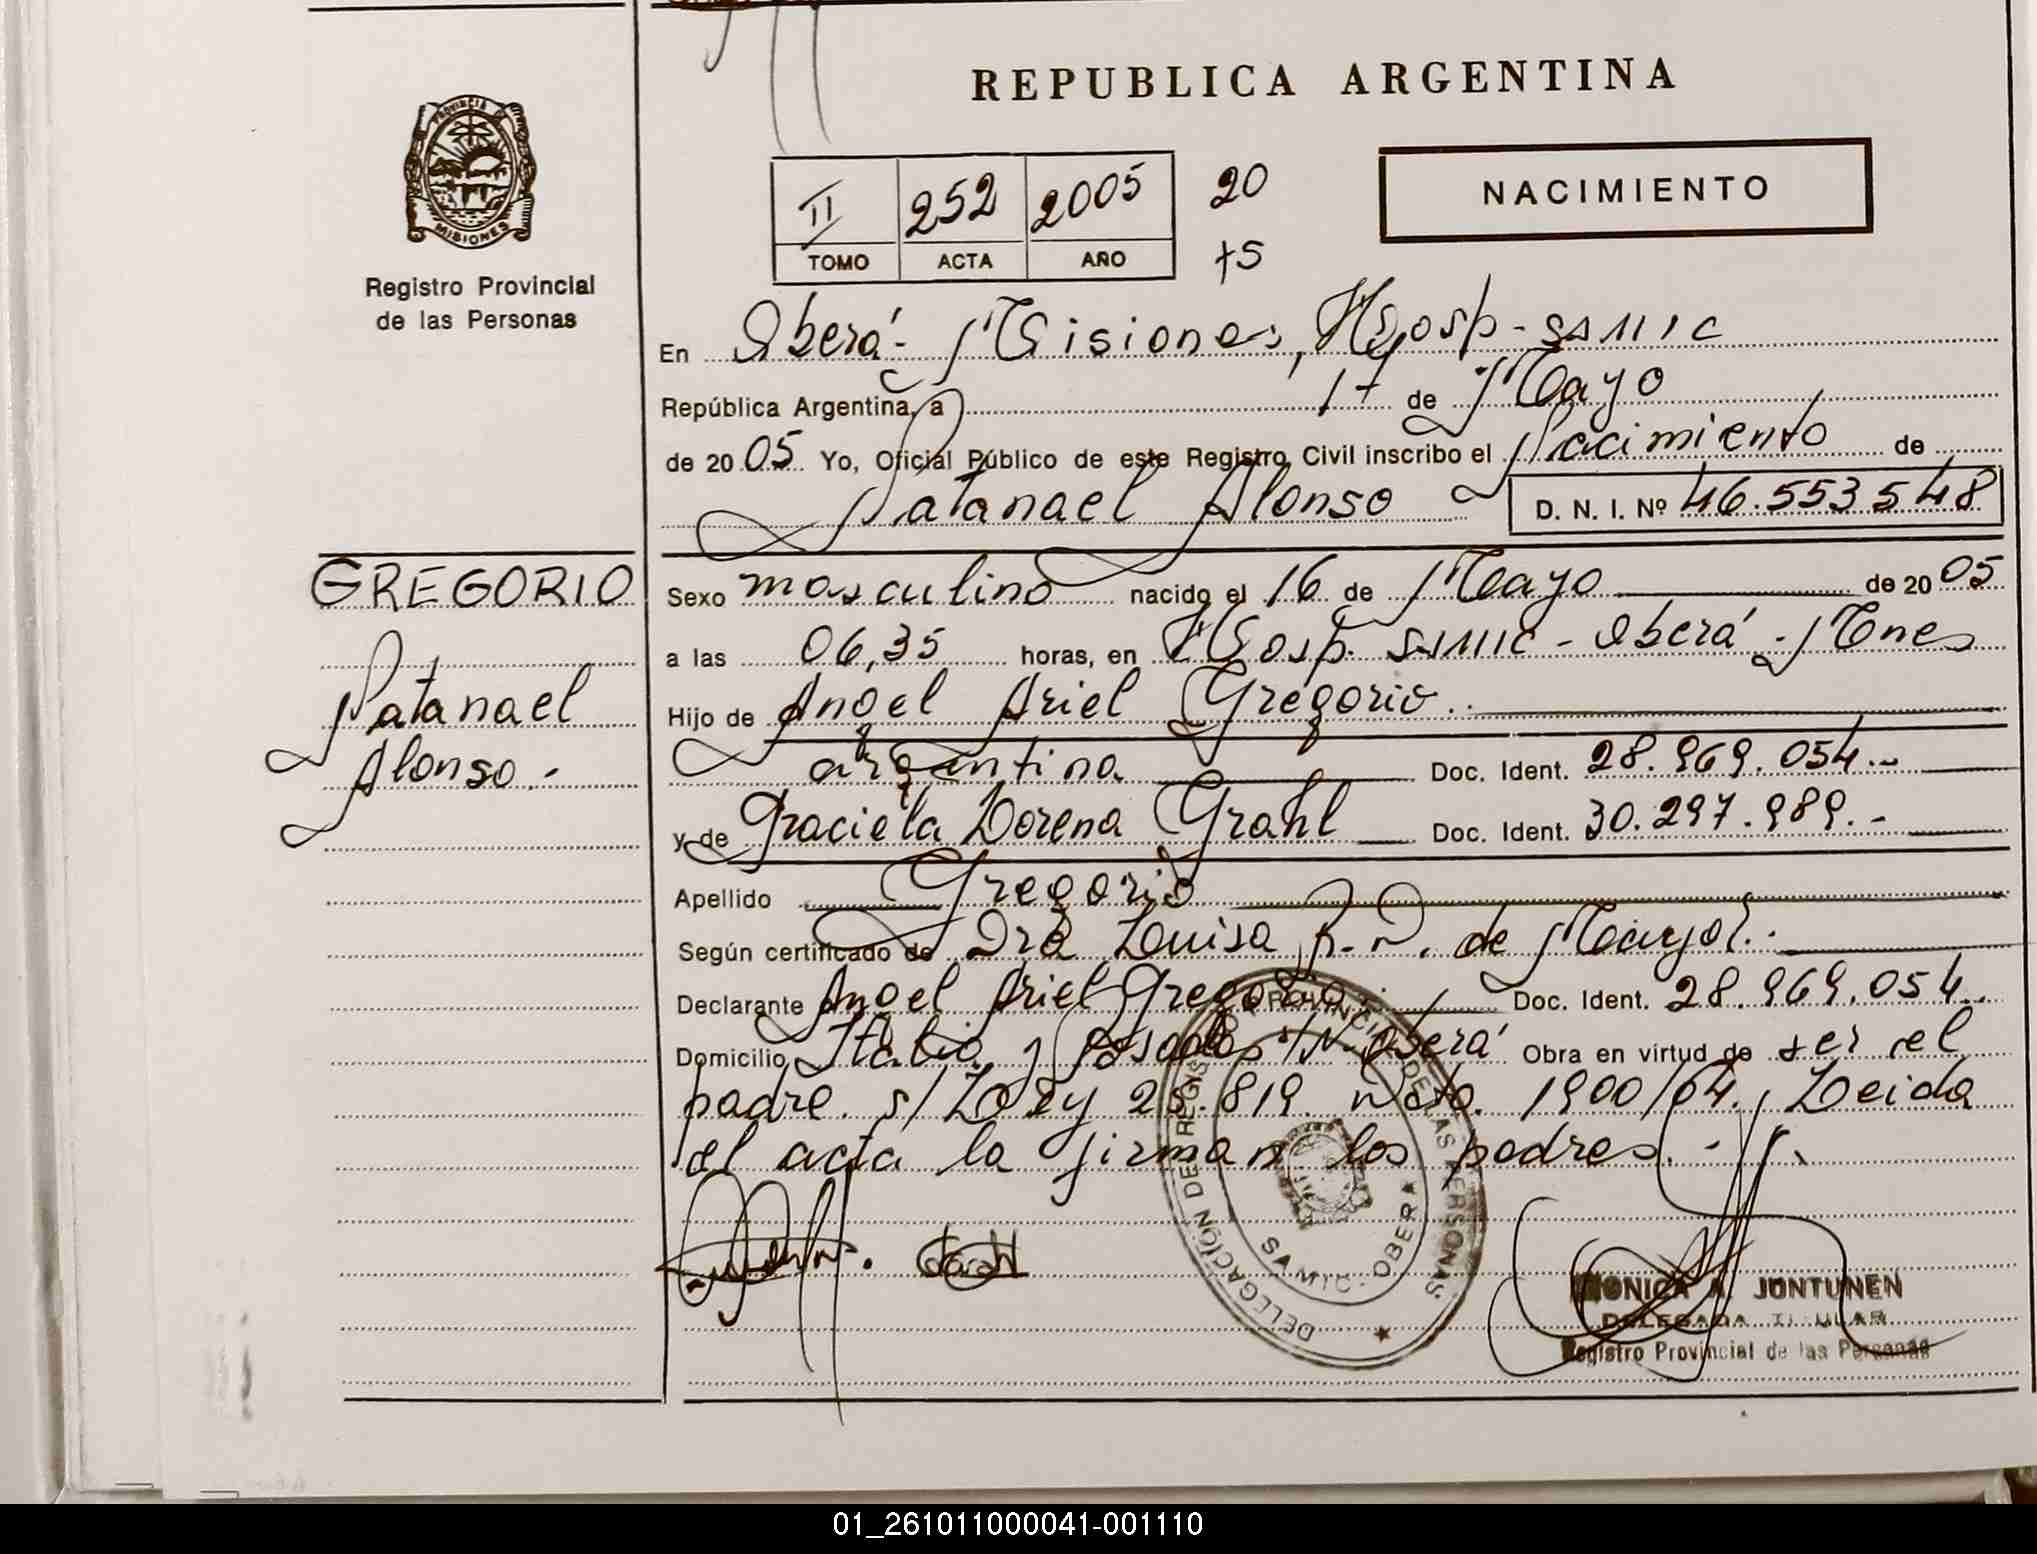 REPUBLICA ARGENTINA
PROVINCIA
MISIONES
Registro Provincial
de las Personas
II 252 2005 20
TOMO ACTA AÑO 75
NACIMIENTO
En Oberá - Misiones, Hosp - SAMIC
República Argentina, a 17 de Mayo
de 2005 Yo, Oficial Público de este Registro Civil inscribo el Nacimiento de
Natanael Alonso D. N. I. Nº 46.553548
GREGORIO
Natanael
Alonso.-
Sexo masculino nacido el 16 de Mayo de 2005
a las 06,35 horas, en Hosp. SAMIC - Oberá - Mnes
Hijo de Angel Ariel Gregorio..
argentina Doc. Ident. 28.969.054.-
y de Graciela Lorena Grahl Doc. Ident. 30.297.989.-
Apellido Gregorio
Según certificado de Dra Luisa R. N. de Mayol.
Declarante Angel Ariel Gregorio Doc. Ident. 28.969.054.
Domicilio Italia y Posadas S/N Oberá Obra en virtud de ser el
padre. s/Ley 25.819. Dcto. 1900/04. Leida
el acta la firman los padres.-
DELEGACIÓN DE REGISTRO PROVINCIAL DE LAS PERSONAS
SAMIC - OBERA
MONICA A. JONTUNEN
DELEGADA TITULAR
Registro Provincial de las Personas
01_261011000041-001110